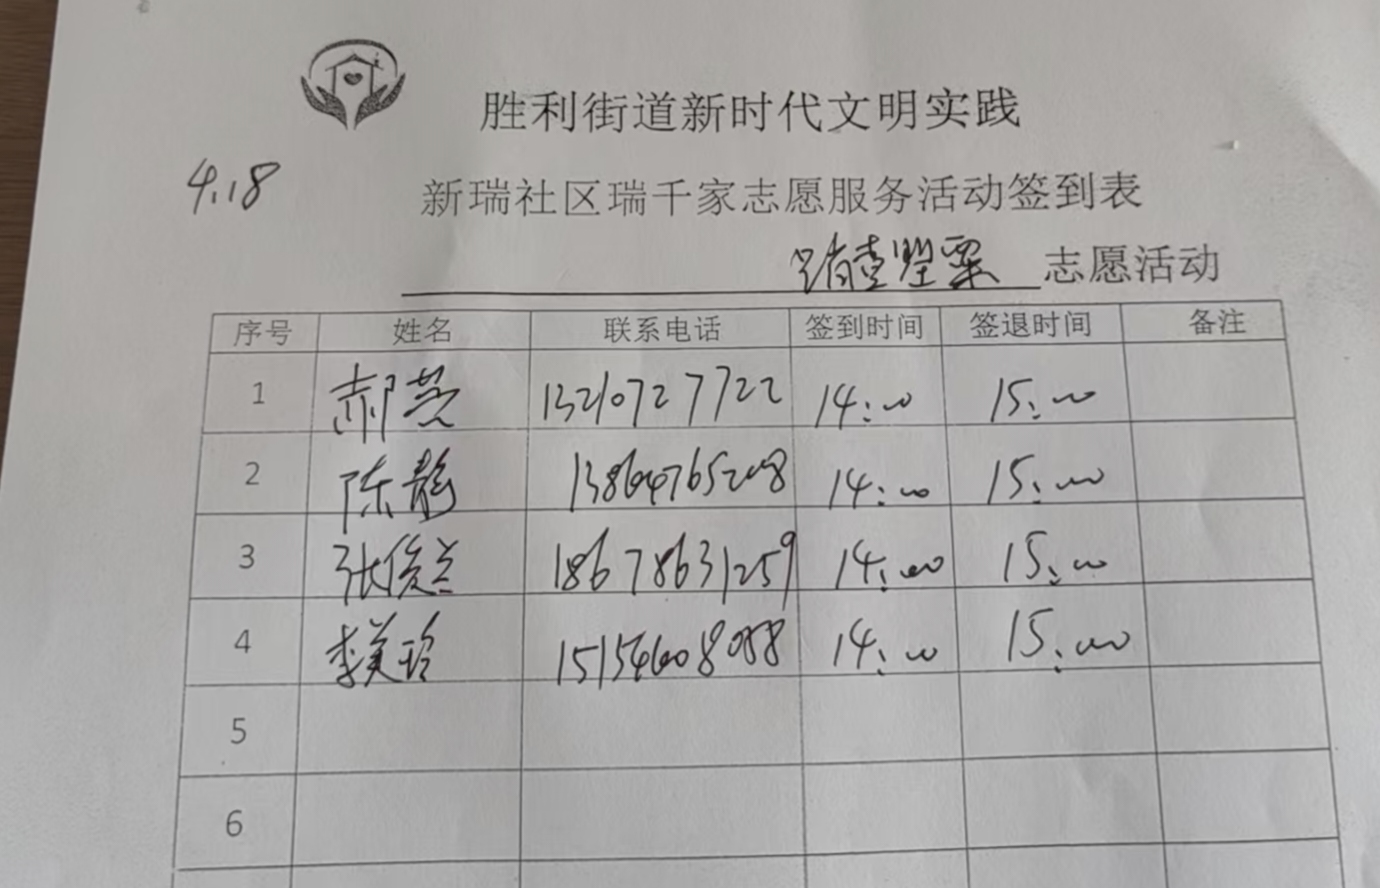 胜利街道新时代文明实践
4.18
新瑞社区瑞千家志愿服务活动签到表
踏查罂粟 志愿活动
序号 姓名 联系电话 签到时间 签退时间 备注
1 郝芸 13210727722 14:00 15:00
2 陈静 13864765208 14:00 15:00
3 张俊兰 18678631259 14:00 15:00
4 李美玲 15154608088 14:00 15:00
5
6